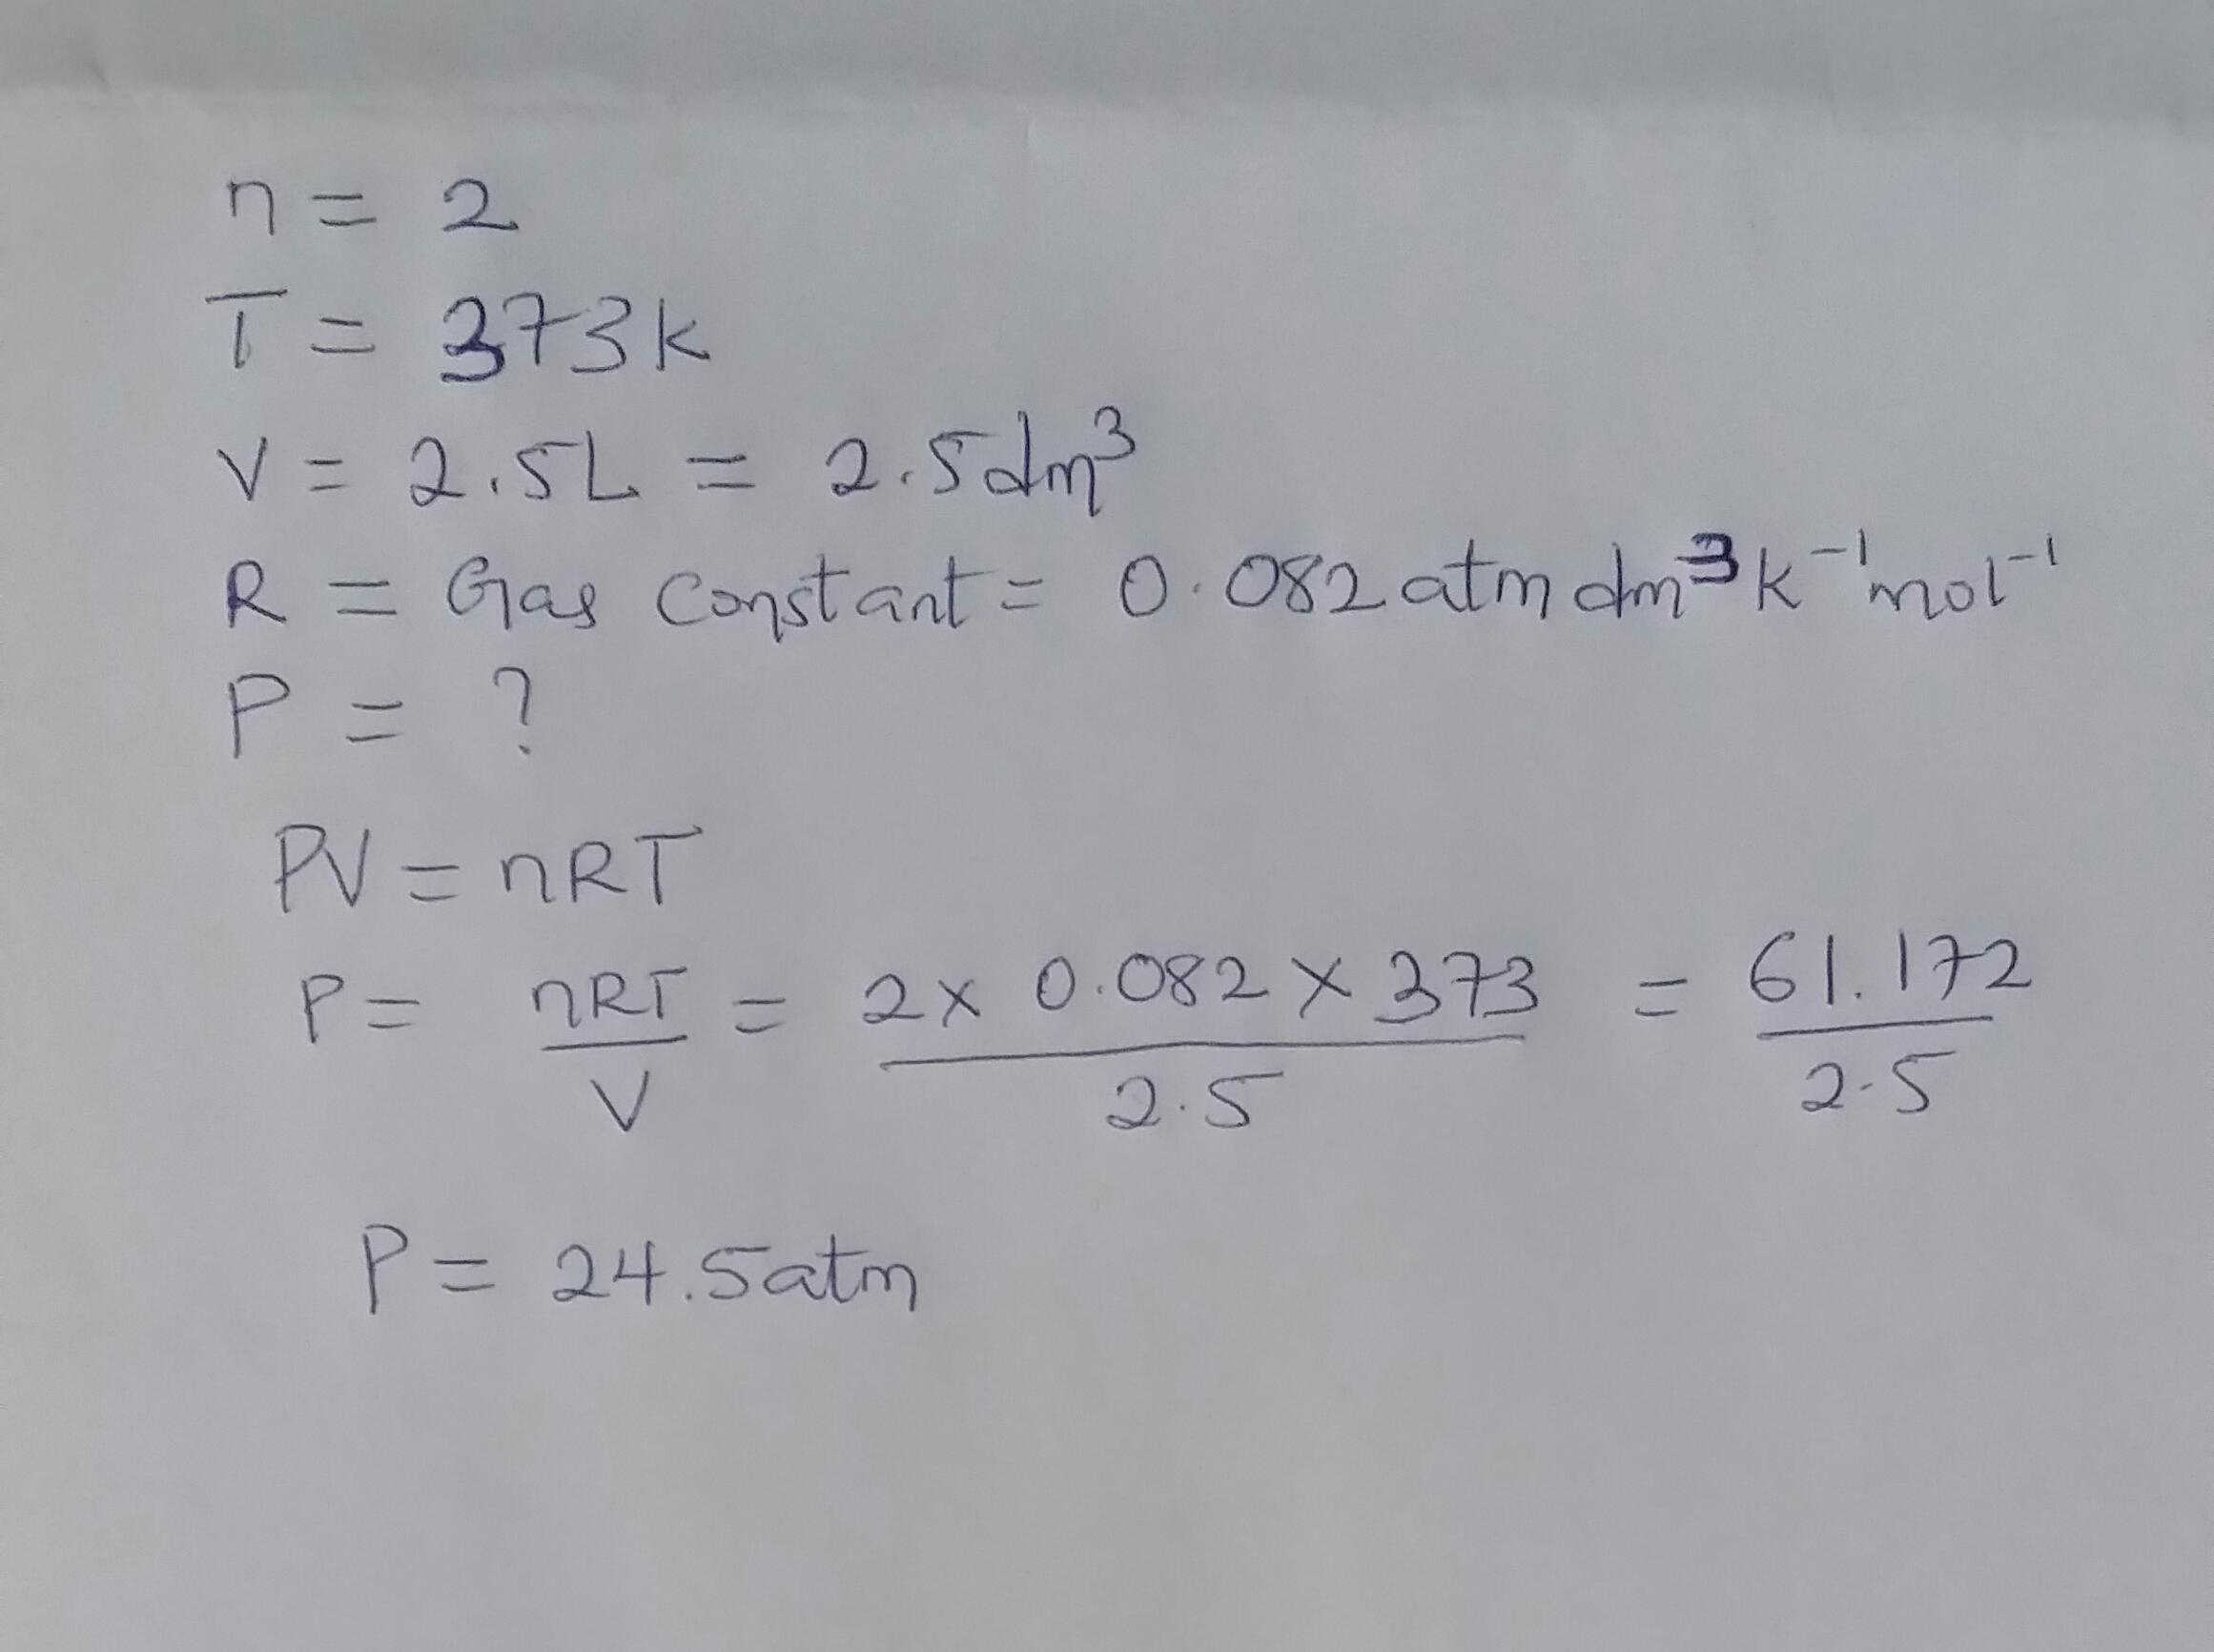 n = 2
T = 373k
V = 2.5L = 2.5dm³
R = Gas Constant = 0.082 atm dm³ k⁻¹ mol⁻¹
P = ?
PV = nRT
P = nRT/V = 2 x 0.082 x 373/2.5 = 61.172/2.5
P = 24.5atm